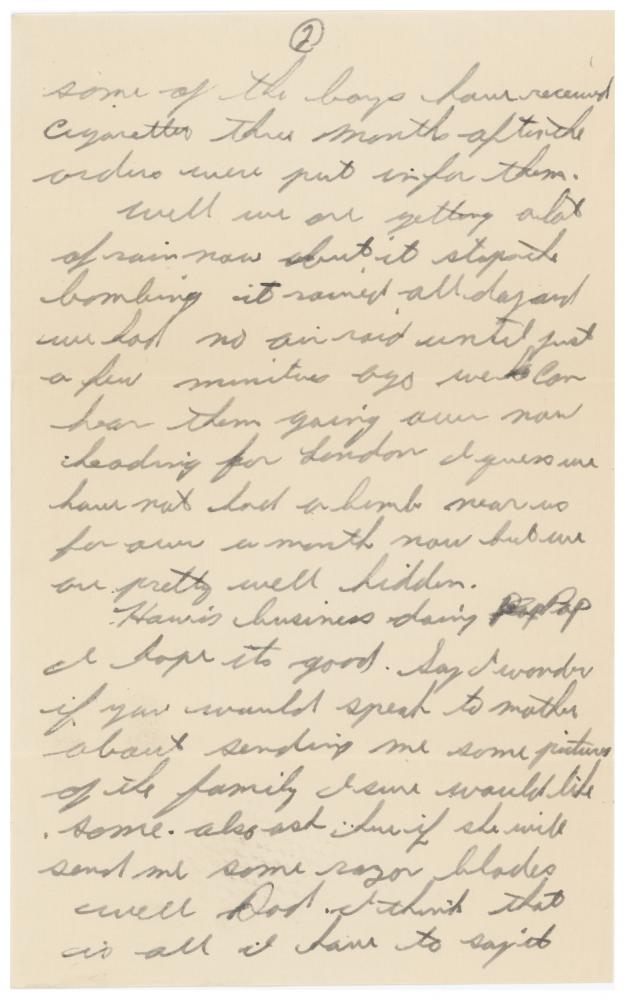 2
some of the boys have received
cigarettes three months after the
orders were put in for them.
well we are getting alot
of rain now but it stops the
bombing it rained all day and
we had no air raid until just
a few minitues ago we can
hear them going over now
heading for London I guess we
have not had a bomb near us
for over a month now but we
are pretty well hidden.
How is business doing Pop
I hope its good. Say I wonder
if you would speak to mother
about sending me some pictures
of the family I sure would like
some. also ask her if she will
send me some razor blades
well Dad I think that
is all I have to say